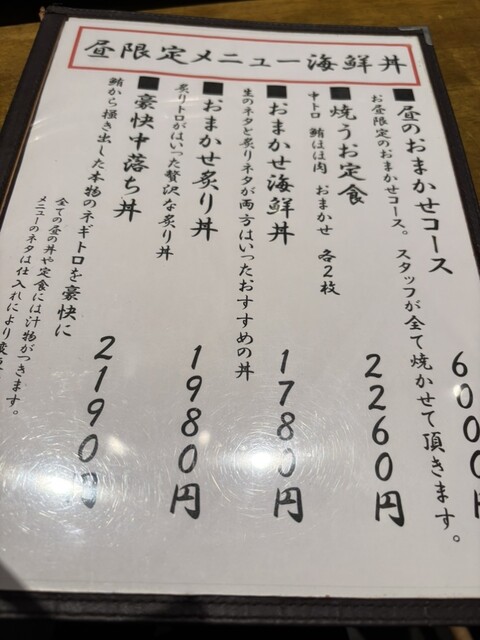 昼限定メニュー海鮮丼
■昼のおまかせコース
お昼限定のおまかせコース。スタッフが全て焼かせて頂きます。
6000円
■焼うお定食
中トロ 鮪ほほ肉 おまかせ 各2枚
2260円
■おまかせ海鮮丼
生のネタと炙りネタが両方はいったおすすめの丼
1780円
■おまかせ炙り丼
炙りトロがはいった贅沢な炙り丼
1980円
■豪快中落ち丼
鮪から掻き出した本物のネギトロを豪快に
2190円
全ての昼の丼や定食には汁物がつきます。
メニューのネタは仕入れにより変更